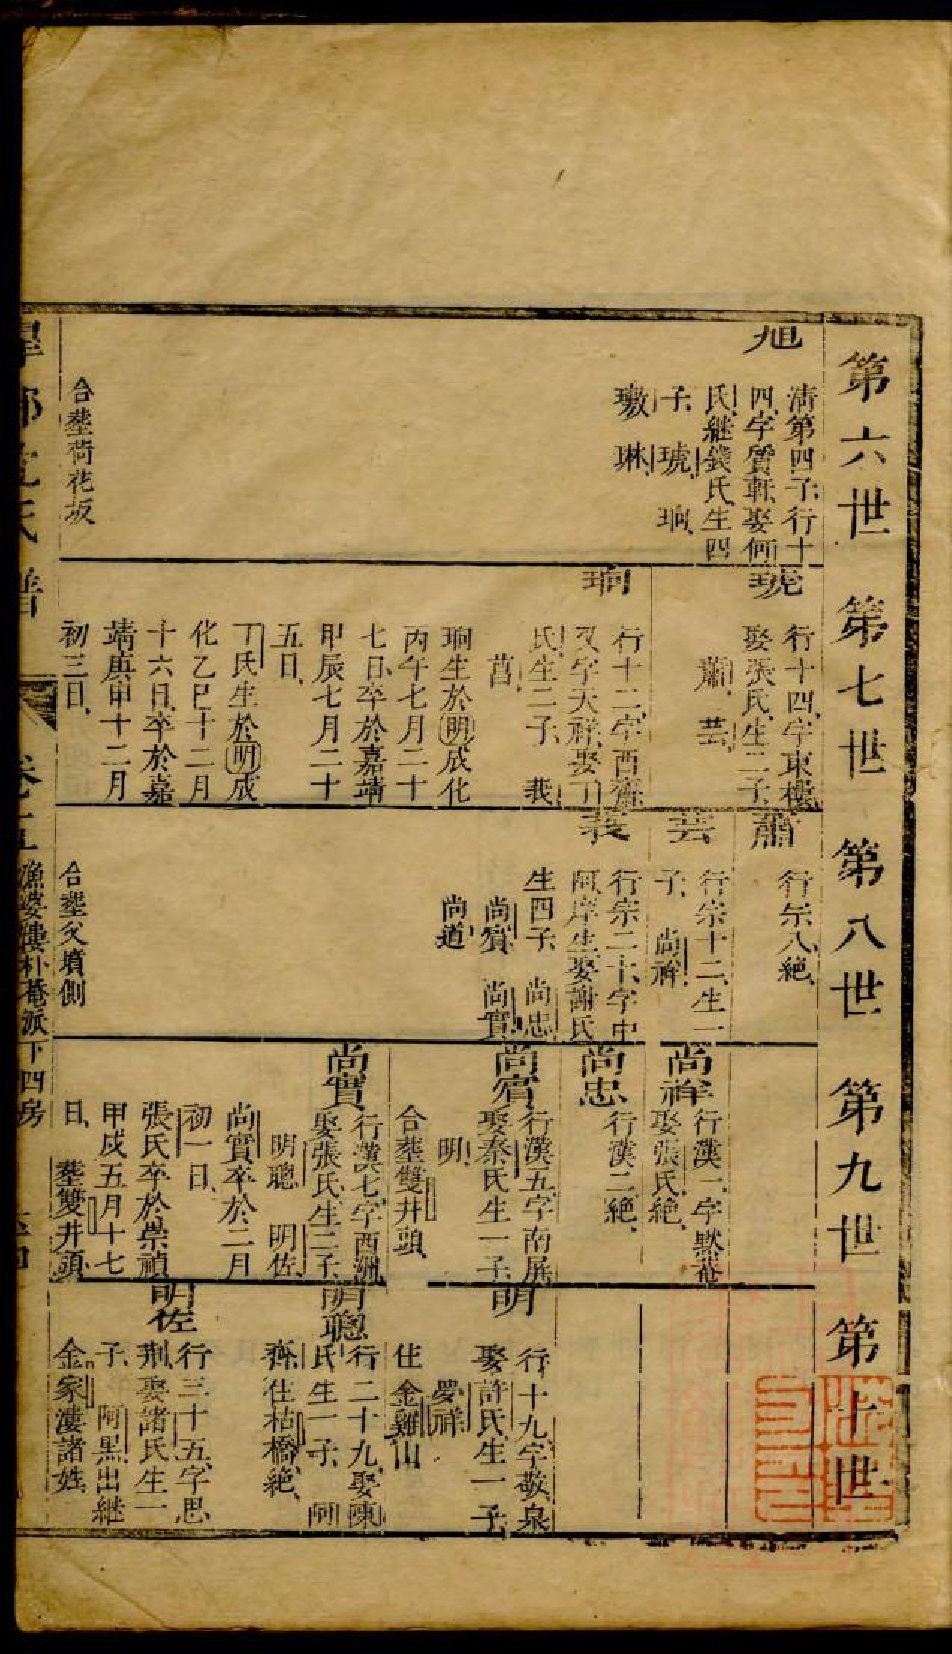 第六世 第七世 第八世 第九世 第十世
旭
清第四子行十
四字質軒娶何
氏繼錢氏生四
子 琥 珦
璈 琳
合塟荷花坂
琥
行十四字東樓
娶張氏生二子
蕭 芸
珦
行十二字西齋
又字天祥娶丁
氏生二子 莪
莒
珦生於明成化
丙午七月二十
七日卒於嘉靖
甲辰七月二十
五日
丁氏生於明成
化乙巳十二月
十六日卒於嘉
靖庚申十二月
初三日
蕭
行宗八絶
芸
行宗十二生一
子 尚祥
莪
行宗二十字中
阿岸生娶謝氏
生四子 尚忠
尚賔 尚實
尚道
合塟父墳側
尚祥
行漢一字默菴
娶張氏絶
尚忠
行漢二絶
尚賔
行漢五字南屏
娶秦氏生一子
明
合塟雙井頭
尚實
行漢七字西洲
娶張氏生二子
明聰 明佐
尚實卒於二月
初一日
張氏卒於崇禎
甲戌五月十七
日 塟雙井頭
明
行十九字敬泉
娶許氏生一子
夢祥
住金雞山
明聰
行二十九娶陳
氏生一子 阿
齊住枯橋絶
明佐
行三十五字思
荆娶諸氏生一
子 阿黒出継
金家漊諸姓
氏譜
卷十五
漁婆樓朴菴派下四房